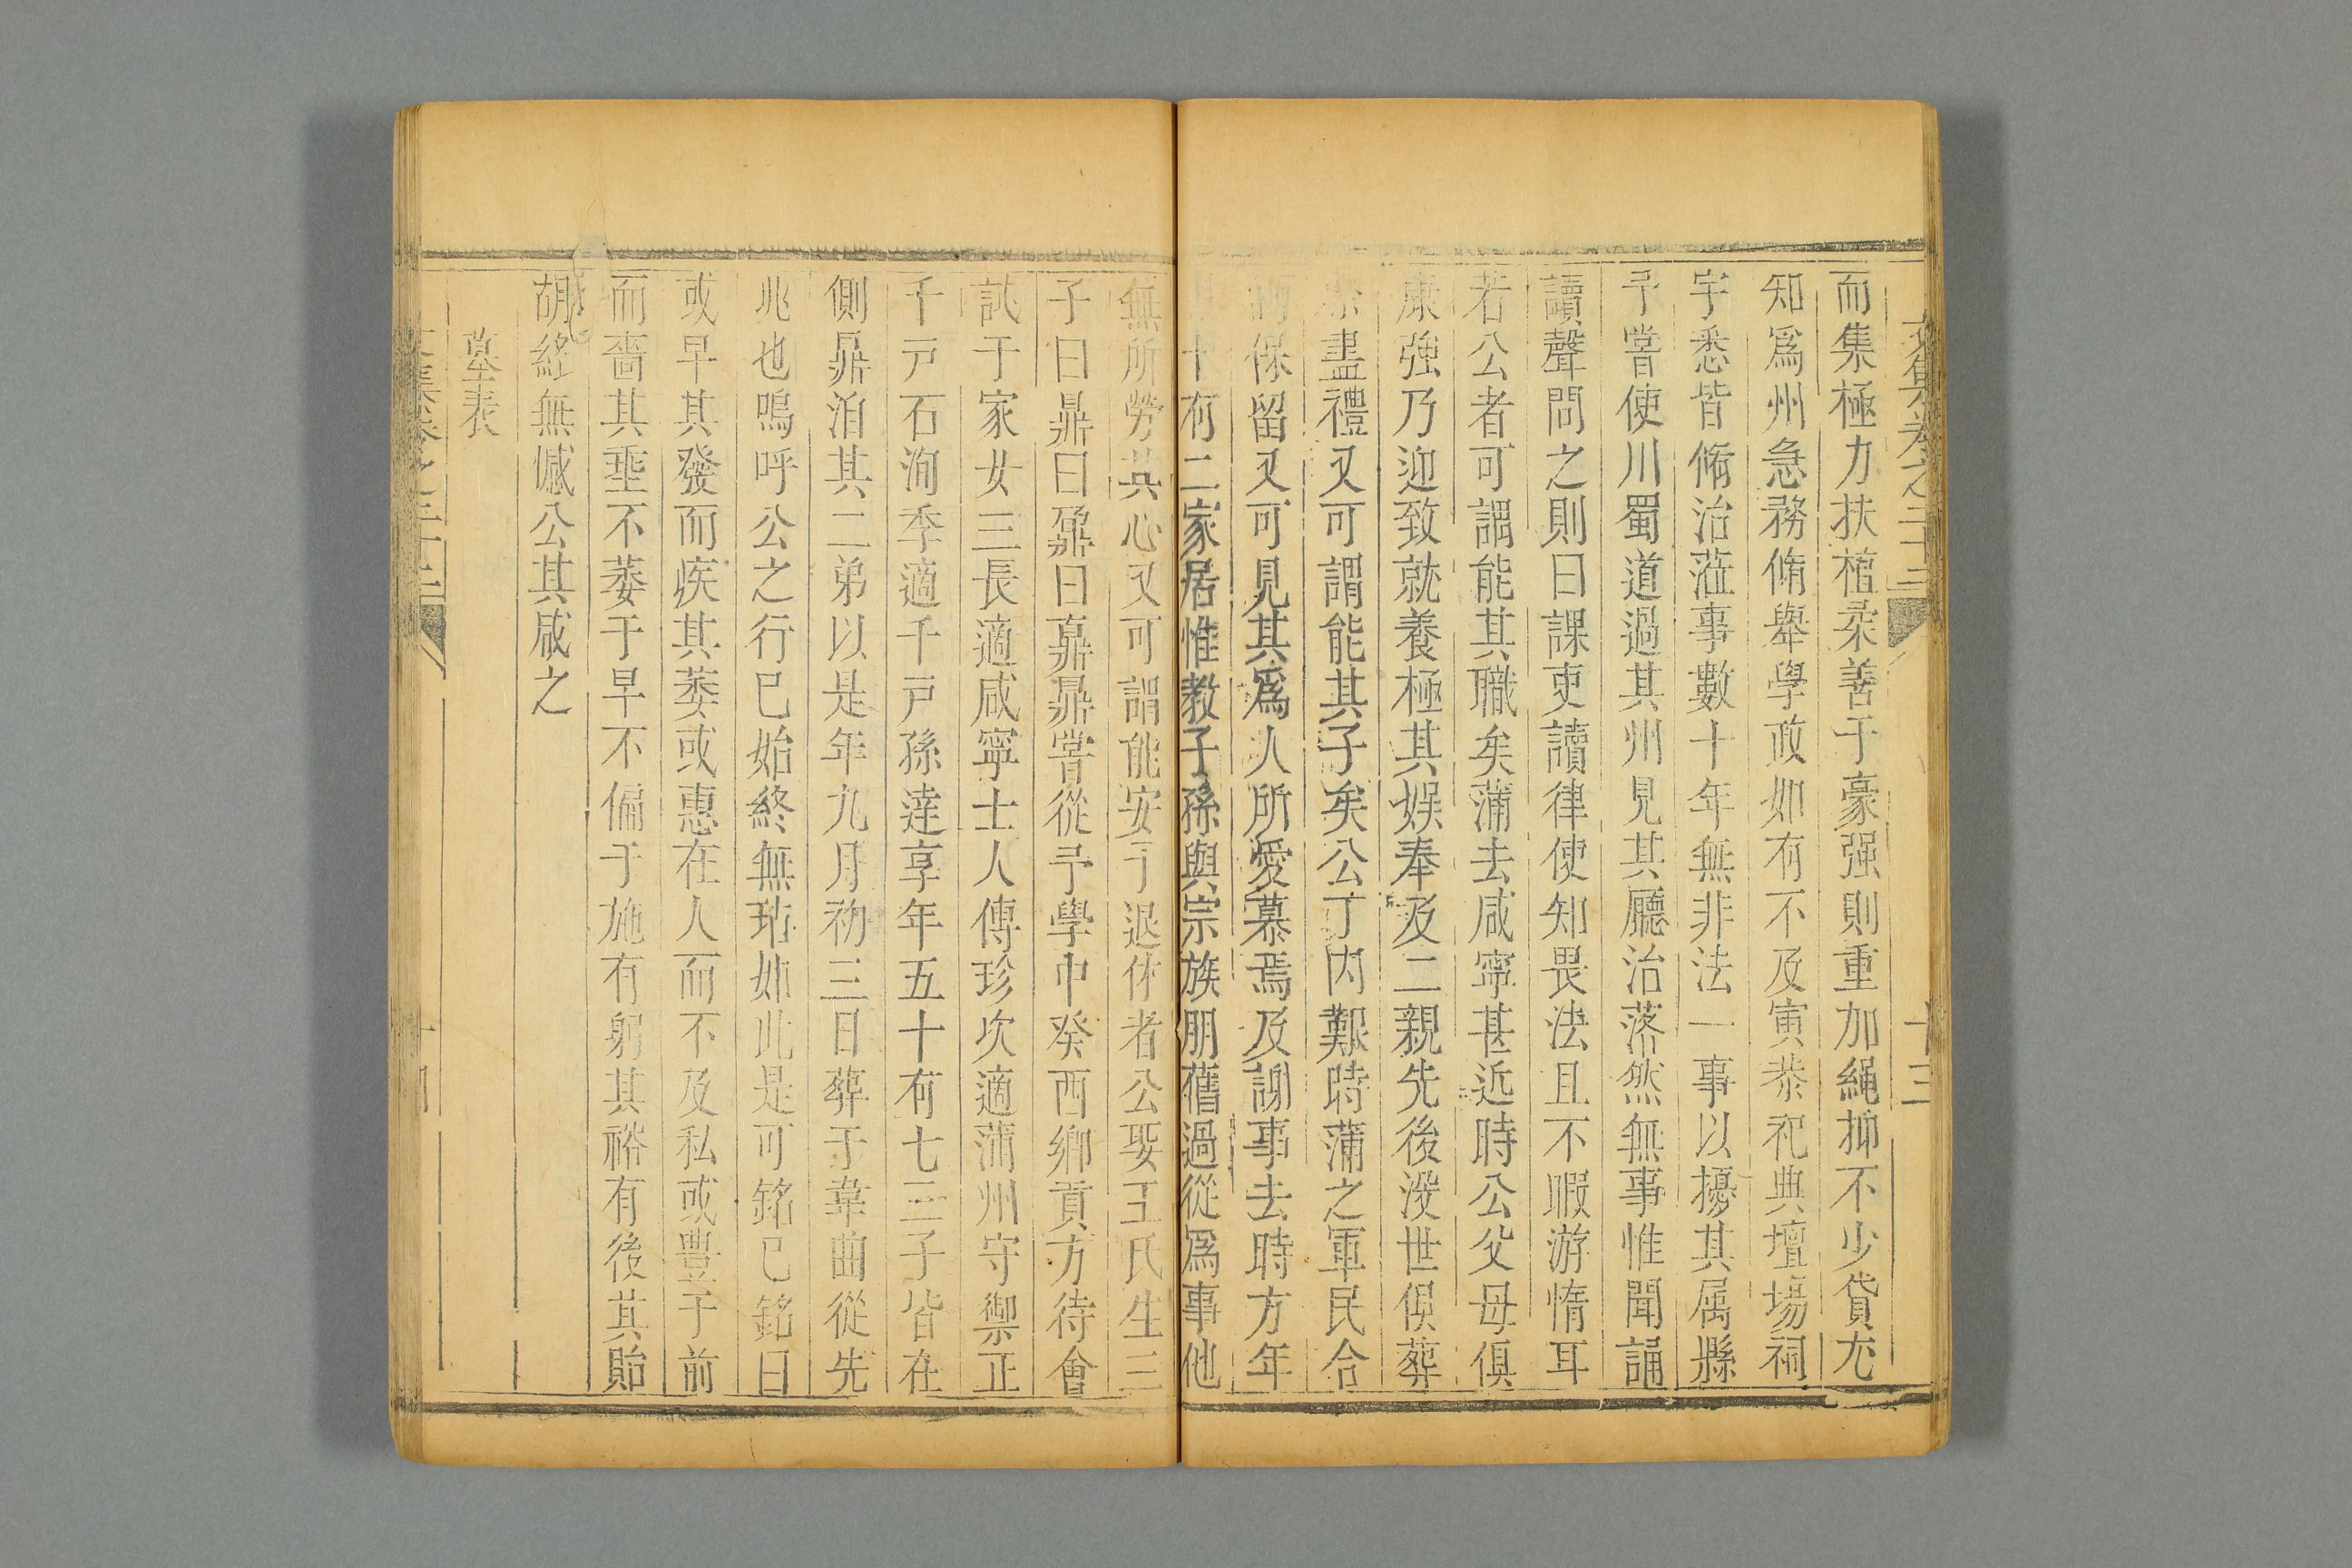 文集卷之二十三 十三
而集極力扶植柔善于豪强則重加繩抑不少貸尤
知爲州急務脩舉學政如有不及寅恭祀典壇場祠
宇悉皆脩治蒞事數十年無非法一事以擾其属縣
予嘗使川蜀道過其州見其廳治落然無事惟聞誦
讀聲問之則曰課吏讀律使知畏法且不暇游惰耳
若公者可謂能其職矣蒲去咸寧甚近時公父母俱
康強乃迎致就養極其娱奉及二親先後没世俱葬
祭盡禮又可謂能其子矣公丁内艱時蒲之軍民合
詞保留又可見其爲人所愛慕焉及謝事去時方年
十有二家居惟教子孫與宗族朋舊過從爲事他
無所勞其心又可謂能安于退休者公娶王氏生三
子曰鼎曰鼐曰鼒鼎嘗從予學中癸酉鄉貢方待會
試于家女三長適咸寧士人傅珍次適蒲州守禦正
千戸石洵季適千戸孫達享年五十有七三子皆在
側鼎洎其二弟以是年九月初三日葬于韋曲從先
兆也嗚呼公之行已始終無玷如此是可銘已銘曰
或早其發而疾其萎或惠在人而不及私或豐于前
而嗇其垂不萎于早不偏于施有躬其裕有後其貽
胡終無憾公其咸之
墓表
集卷之二十三